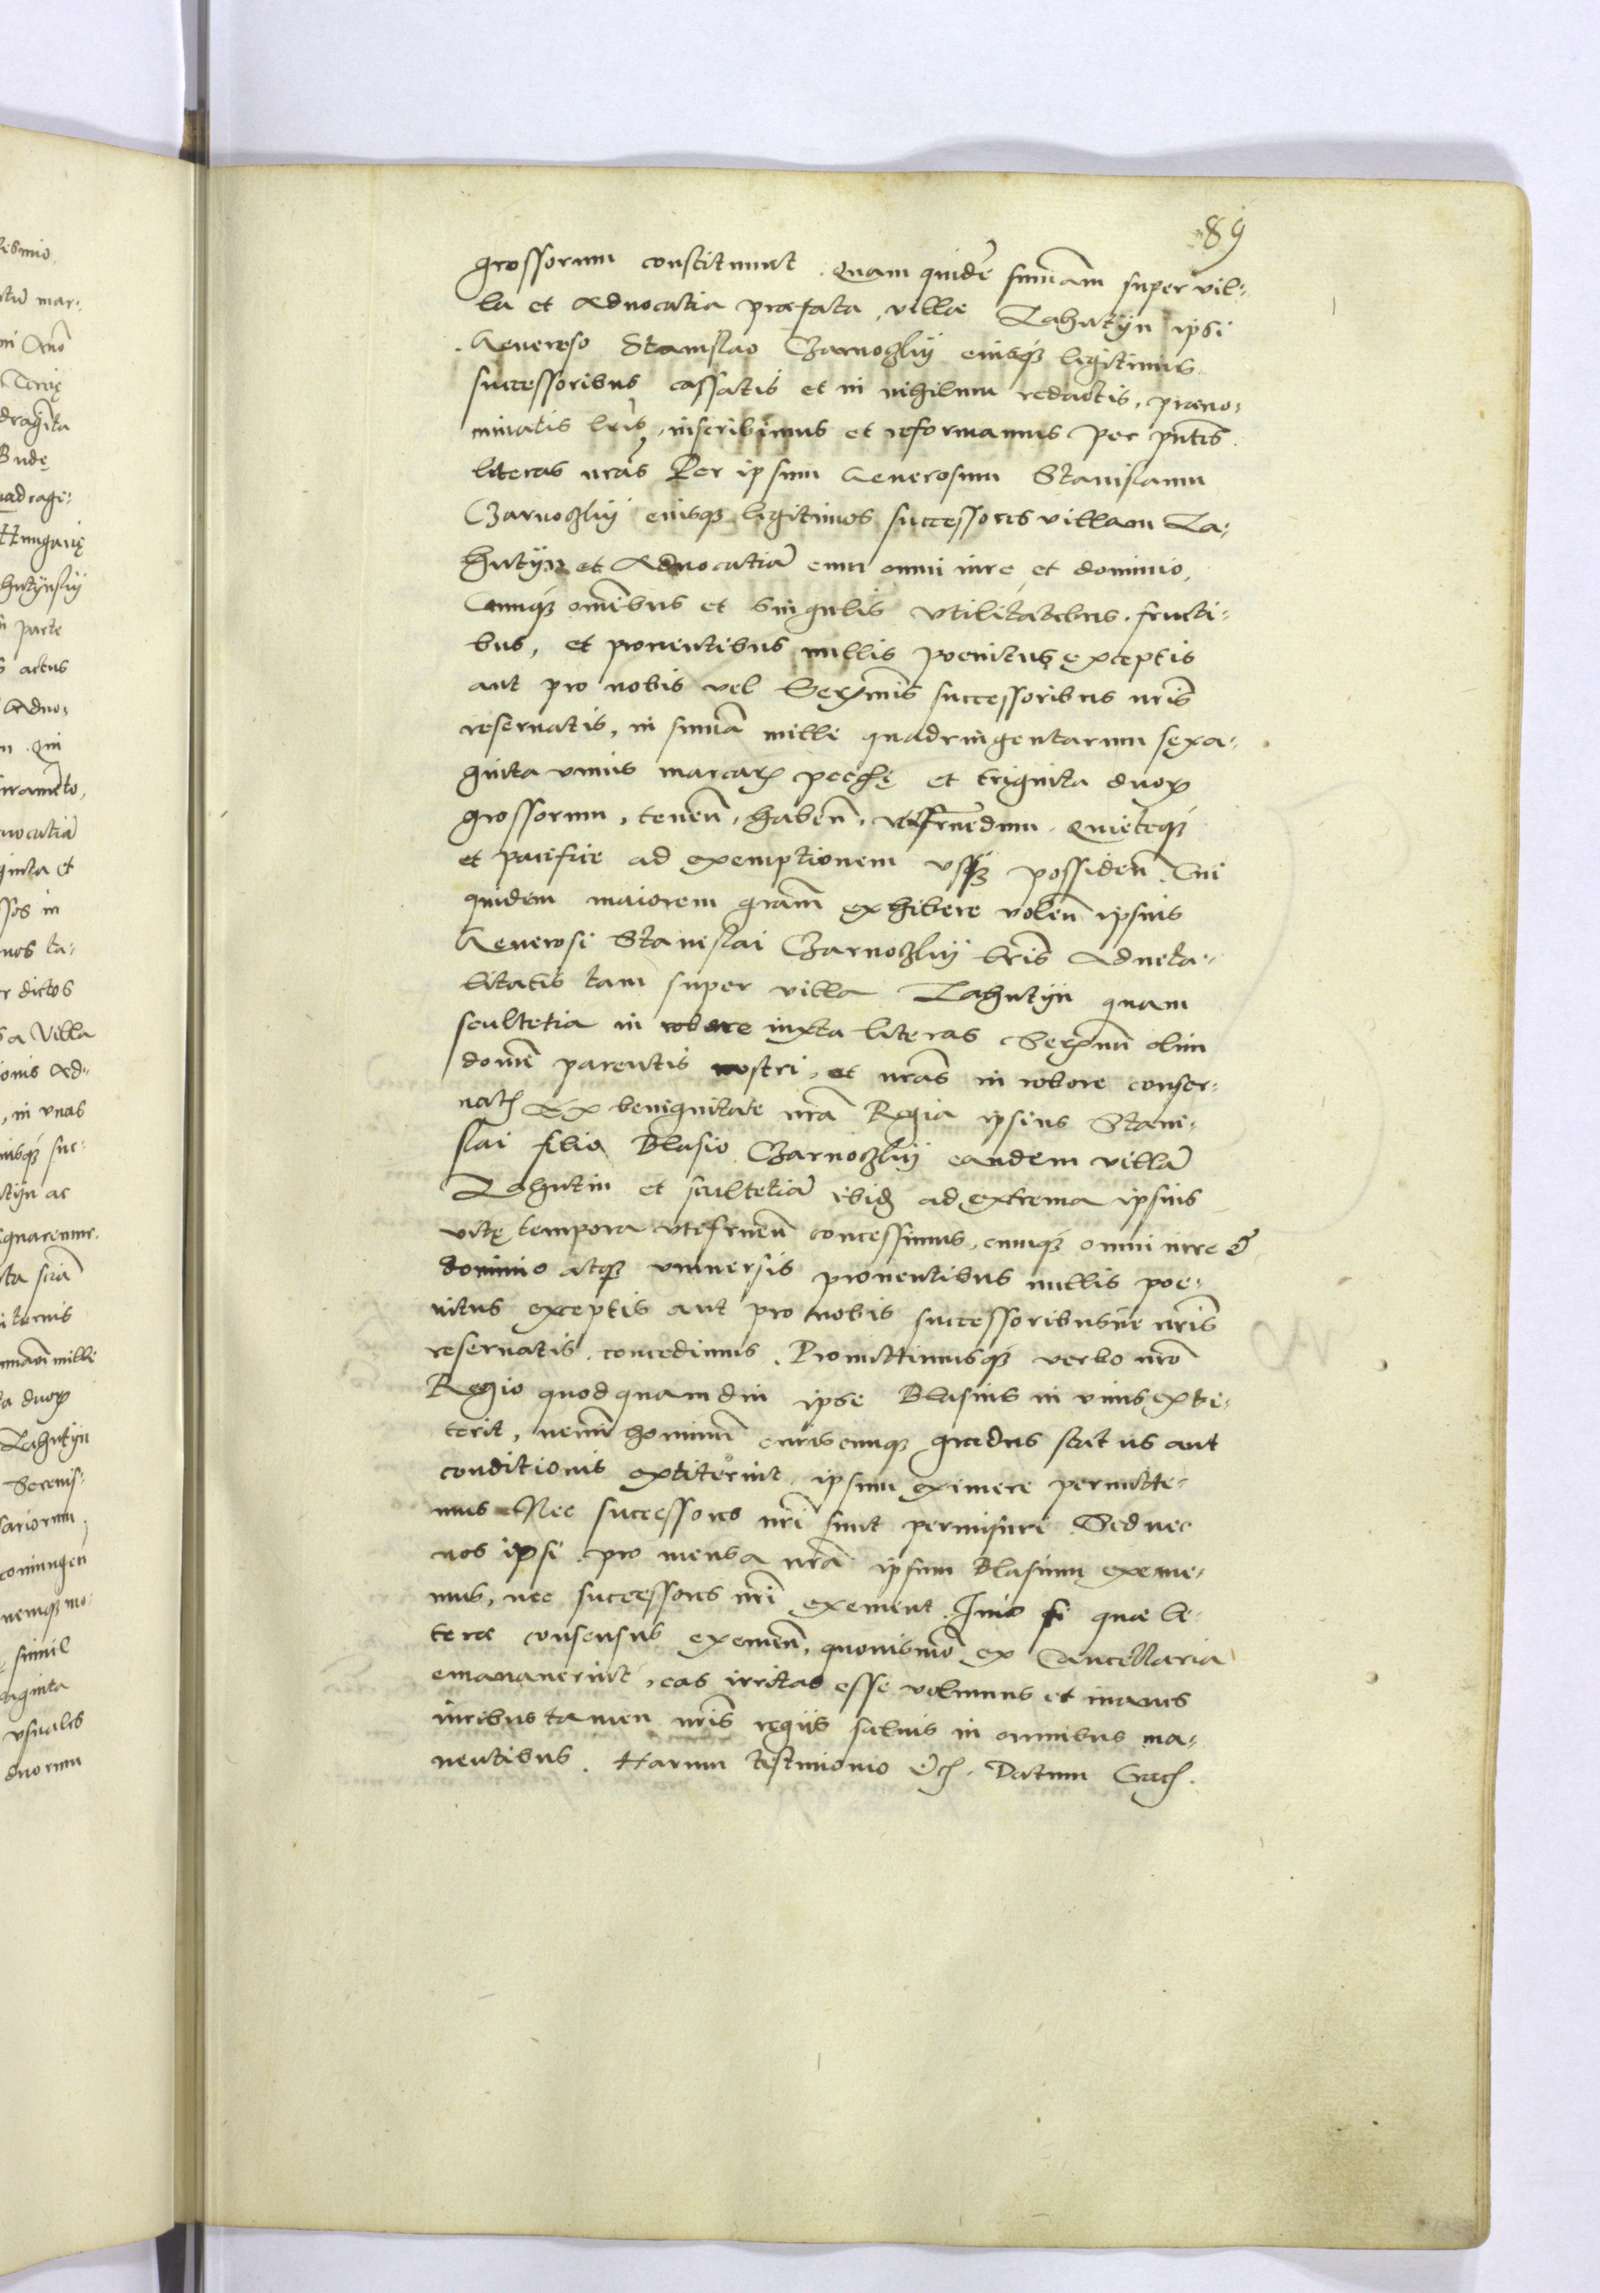 89
grossorum constituunt. Quam quidē sum̄am super vil-
la et Advocatia præfata, villæ Lahutÿn ipsi
Generoso Stanislao Czarnoczkÿ eiusq̃ legitimis
successoribus cassatis et in nihilum redactis, præno-
minatis lr̄is, inscribimus et reformamus per pn̄tes
literas nr̄as Per ipsum Generosum Stanislaum
Czarnoczkÿ eiusq̃ legitimos successores villam La-
hutÿn et Advocatiā cum omni iure et dominio,
Cumq̃ om̄ibus et singulis vtilitatibus, fructi-
bus, et proventibus nullis poenitus exceptis
aut pro nobis vel Serx̄mis successoribus nr̄is
reservatis, in sum̄a mille quadringentarum sexa-
ginta vnius marcaꝝ pecch̨ę et triginta duoꝝ
grossorum, tenen̄, haben̄, vtifruēdum. Quieteq̃
et pacifice ad exemptionem vsq̃ possiden̄. Cui
quidem maiorem gram̄ exhibere volen̄ ipsius
Generosi Stanislai Czarnoczkÿ lr̄is Advita-
litatis tam super villa Lahutÿn quam
scultetia in robore iuxta literas Serx̄mi olim
domī parentis nostri, et nr̄as in robore conser-
vatꝭ Ex benignitate nr̄a Regia ipsius Stani-
slai filio Blasio Czarnoczkÿ eandem villā
Lahutin et scultetiā ibidꝫ ad extrema ipsius
vitę tempora vtifruen̄ concessimus, cumq̃ omni iure &
dominio atq̃ vniversis proventibus nullis poe-
nitus exceptis aut pro nobis successoribusve nr̄is
reservatis, concedimus. Promittimusq̃ verbo nr̄o
Regio quod quamdiu ipse Blasius in vivis exti-
terit, nemī hominū cuiuscunq̃ gradus status aut
conditionis extiterint ipsum eximere permitte-
mus. Nec successores nr̄i sunt permissuri. Sed nec
nos ipsi pro mensa nr̄a ipsum Blasium exeme-
mus, nec successores nr̄i exement. Imo si quæ li-
teræ consensus exemen̄, quovismō ex Cancellaria
emanaverint, eas irritas esse volumus et inanes
iuribus tamen nr̄is regijs salvis in omnibus ma-
nentibus. Harum testimonio &cꝭ. Datum Cracꝭ.